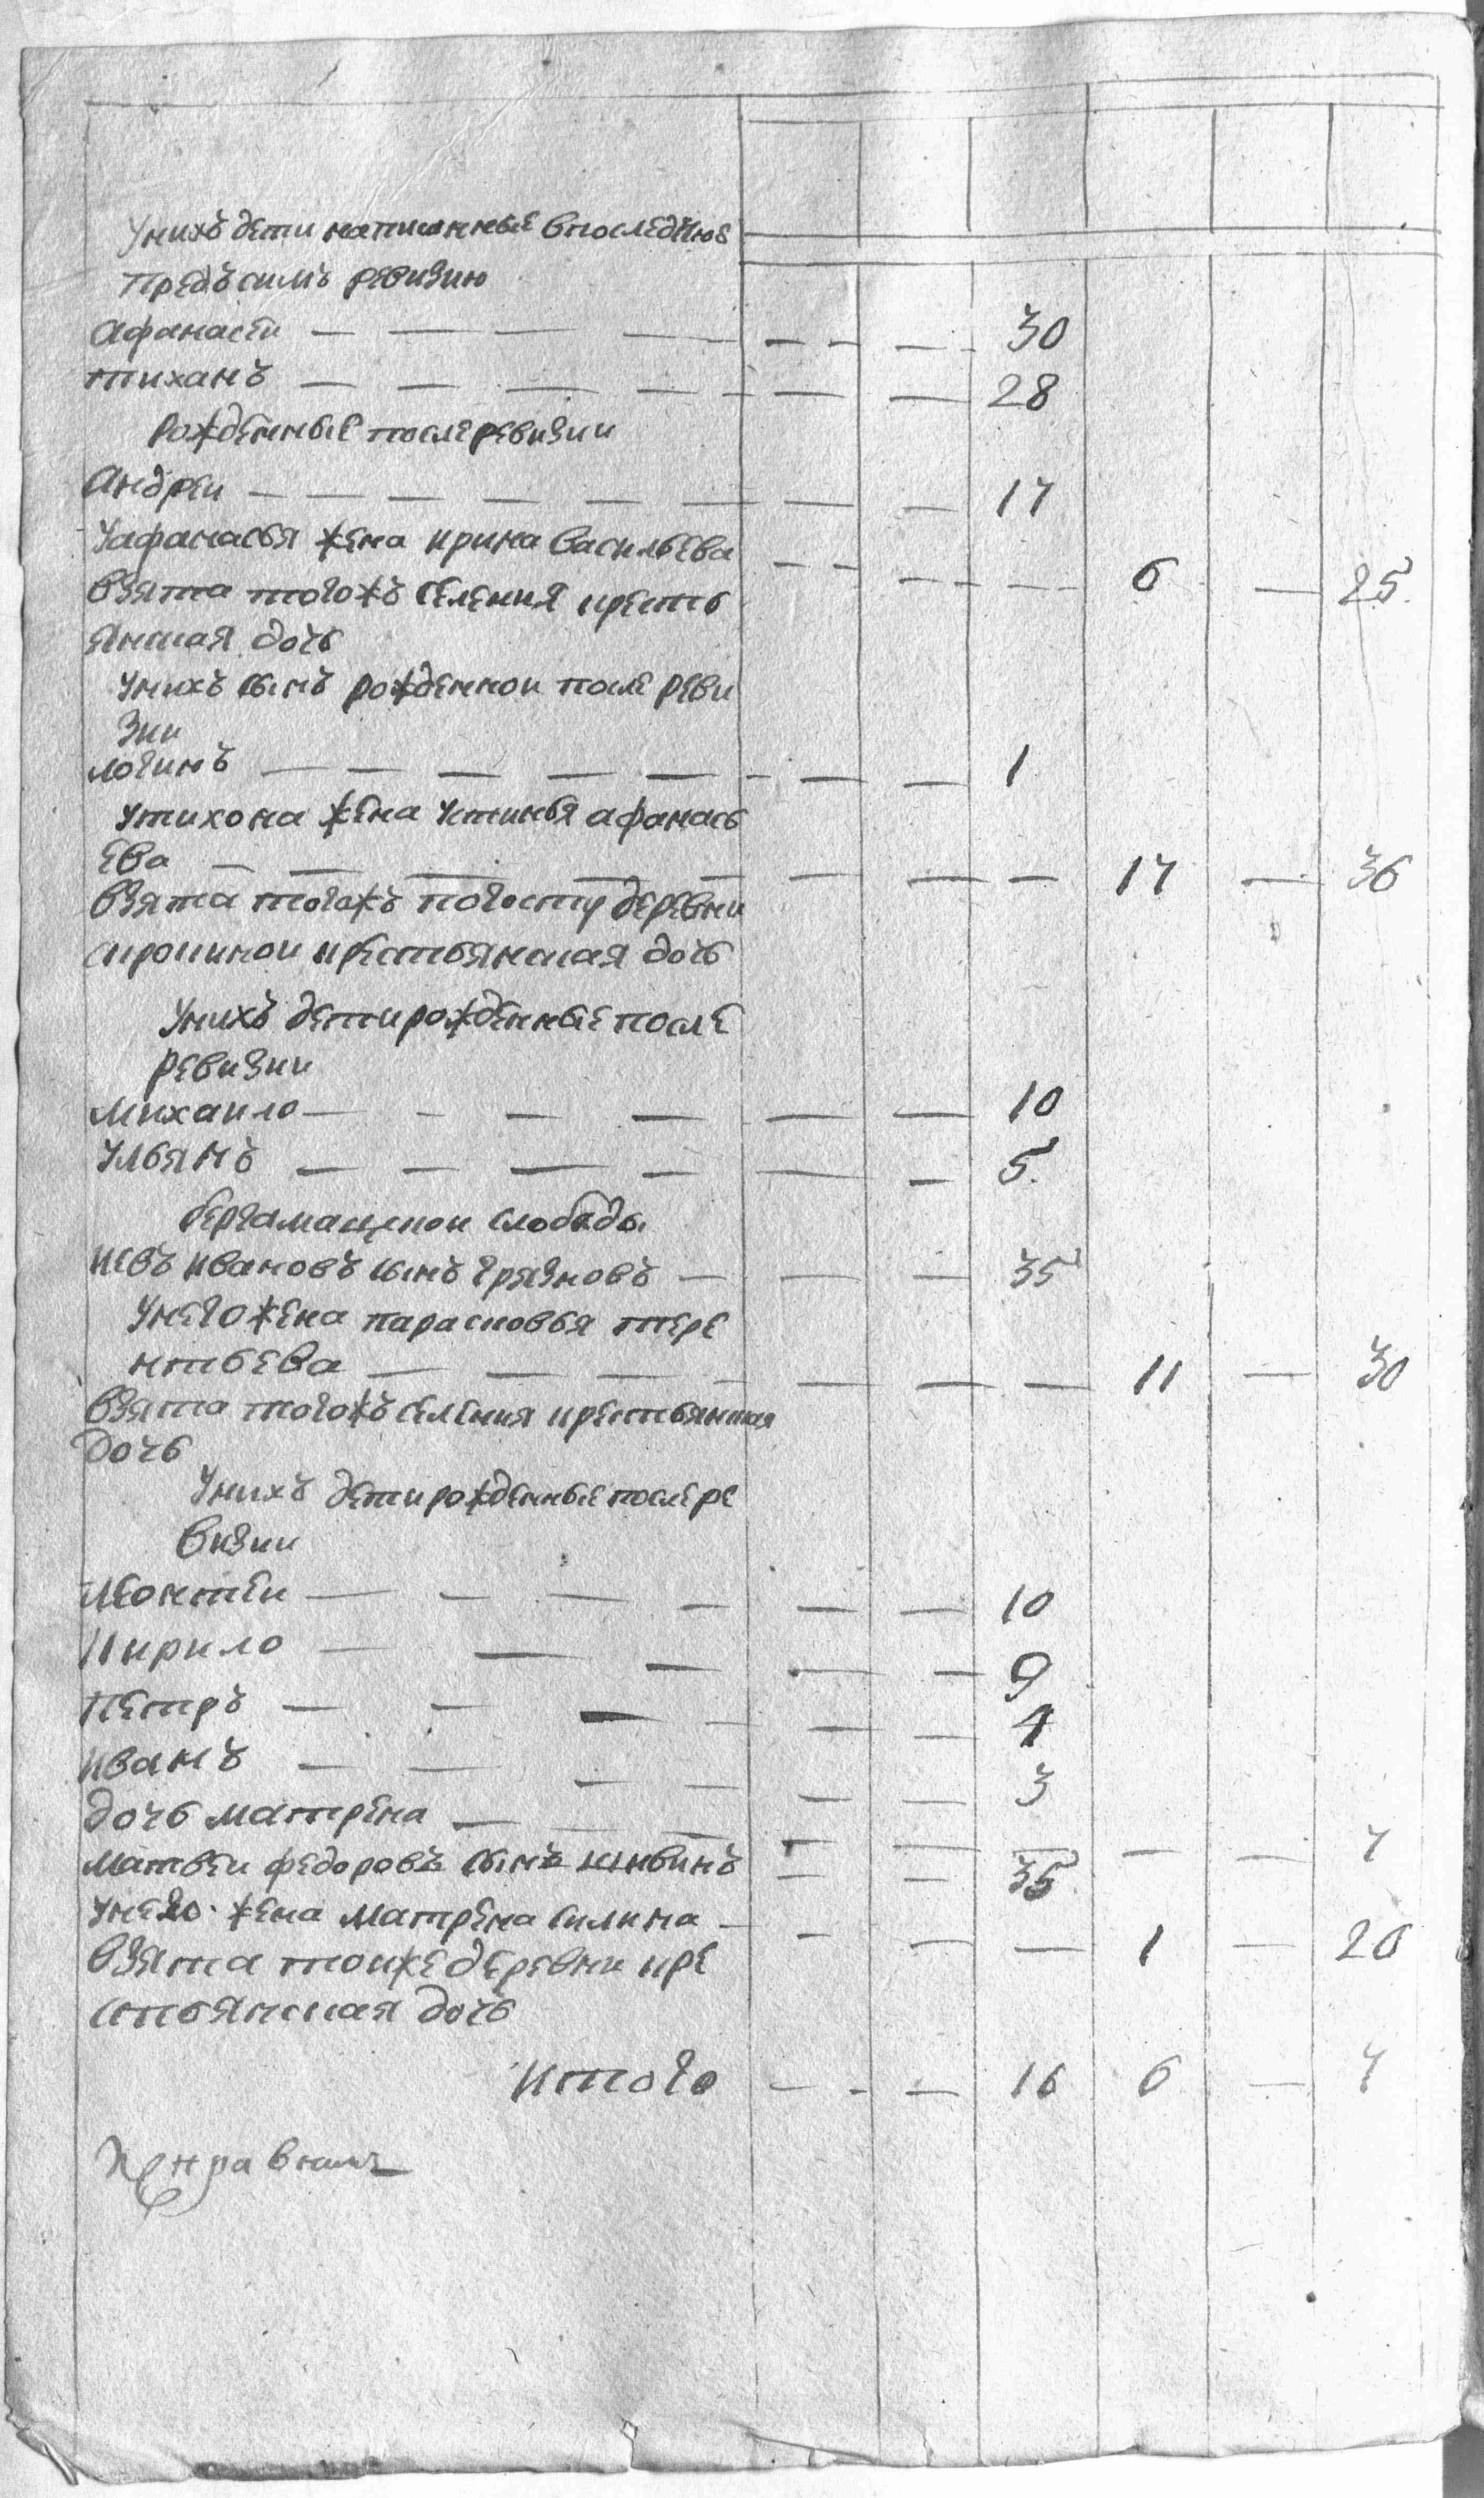 Унихъ дети написанные впоследнюю
предъсимъ ревизию
Афанасеи — — — — — — — 30
тиханъ — — — — — — — 28
Рожденные после ревизии
Андреи — — — — — — — — 17
Уафанасья жена ирина васильева
взята тогожъ селения кресть — — — — — 6 — 25
янская дочь
Унихъ сынъ рожденнои после реви
зии
логинъ — — — — — — — — 1
Утихона жена Устинья афанась
ева — — — — — — — — 17 — 36
взята тогожъ погосту деревни
крестьянская дочь
Унихъ дети рожденные после
ревизии
михаило — — — — — — 10
Ульянъ — — — — — — 5
бергамацкои слободы
иевъ ивановъ сынъ грязновъ — — — 35
Унего жена парасковья тере
нтьева — — — — — — — 11 — 30
взята тогожъ селения крестьянская
дочь
Унихъ дети рожденные после ре
визии
леонтеи — — — — — — 10
Кирило — — — — — 9
Петръ — — — — — — 4
иванъ — — — — — — 3
дочь матрена — — — — — — — — 7
матвеи федоровъ сынъ — — 35
Унего жена матрена силина — — — — 1 — 20
взята тоиже деревни кре
стьянская дочь
итого — — — 16 6 — 7